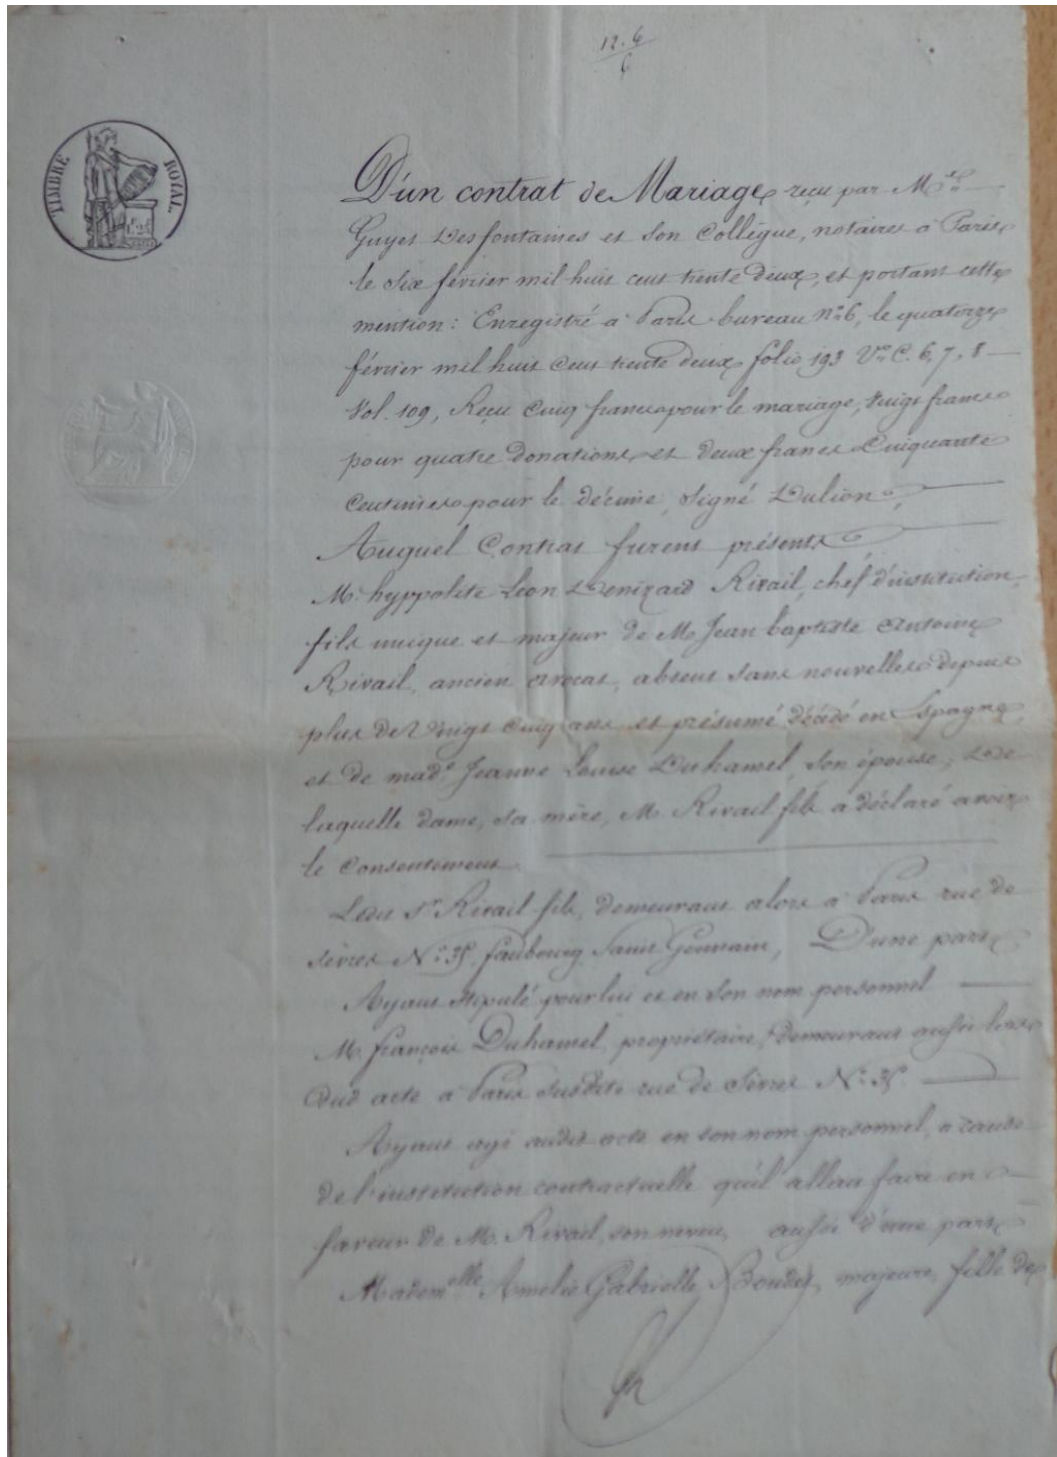 12. 6
6
TIMBRE ROYAL.
D'un contrat de Mariage reçu par M.es
Guyet Desfontaines et son Collègue, notaires à Paris
le six février mil huit cent trente deux, et portant cette
mention: Enregistré à Paris bureau N.o 6, le quatorze
février mil huit cent trente deux folio 193 V.o C. 6, 7, 8
Vol. 109, Reçu Cinq francs pour le mariage, vingt francs
pour quatre donations et deux francs Cinquante
Centimes pour le décime, Signé Dulion
Auquel Contrat furent présents
M. hyppolite Léon Denizard Rivail, chef d'institution,
fils unique et majeur de M. Jean baptiste Antoine
Rivail, ancien avocat, absent sans nouvelles depuis
plus de vingt cinq ans et présumé décédé en Espagne,
et de mad.e Jeanne Louise Duhamel, son épouse, De
laquelle dame, sa mère, M. Rivail fils a déclaré avoir
le consentement
Ledit S.r Rivail fils, demeurant alors à Paris rue de
sèvres N.o 35, faubourg Saint Germain, D'une part
Ayant stipulé pour lui et en son nom personnel
M. françois Duhamel, propriétaire, demeurant aussi lors
dud acte à Paris susdite rue de Sèvres N.o 35.
Ayant agi audit acte en son nom personnel, à cause
de l'institution contractuelle qu'il allait faire en
faveur de M. Rivail, son neveu, aussi d'une part
Madem.elle Amélie Gabrielle Boudet, majeure, fille de